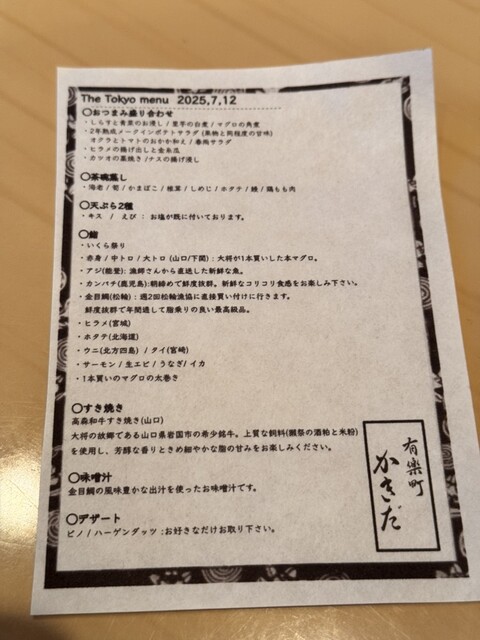 The Tokyo menu 2025,7,12
○おつまみ盛り合わせ
・しらすと青菜のお浸し / 里芋の白煮 / マグロの角煮
・2年熟成メークインポテトサラダ (果物と同程度の甘味)
オクラとトマトのおかか和え / 春雨サラダ
・ヒラメの揚げ出しと金糸瓜
・カツオの藁焼き / ナスの揚げ浸し
○茶碗蒸し
・海老 / 筍 / かまぼこ / 椎茸 / しめじ / ホタテ / 鰻 / 鶏もも肉
○天ぷら2種
・キス / えび : お塩が既に付いております。
○鮨
・いくら祭り
・赤身 / 中トロ / 大トロ (山口/下関) : 大将が1本買いした本マグロ。
・アジ(能登): 漁師さんから直送した新鮮な魚。
・カンパチ(鹿児島):朝締めで鮮度抜群。新鮮なコリコリ食感をお楽しみ下さい。
・金目鯛(松輪) : 週2回松輪漁協に直接買い付けに行きます。
鮮度抜群で年間通して脂乗りの良い最高級品。
・ヒラメ(宮城)
・ホタテ(北海道)
・ウニ(北方四島) / タイ(宮崎)
・サーモン / 生エビ / うなぎ/ イカ
・1本買いのマグロの太巻き
○すき焼き
高森和牛すき焼き(山口)
大将の故郷である山口県岩国市の希少銘牛。上質な飼料(獺祭の酒粕と米粉)
を使用し、芳醇な香りときめ細やかな脂の甘みをお楽しみください。
○味噌汁
金目鯛の風味豊かな出汁を使ったお味噌汁です。
○デザート
ピノ / ハーゲンダッツ :お好きなだけお取り下さい。
有楽町
かきだ